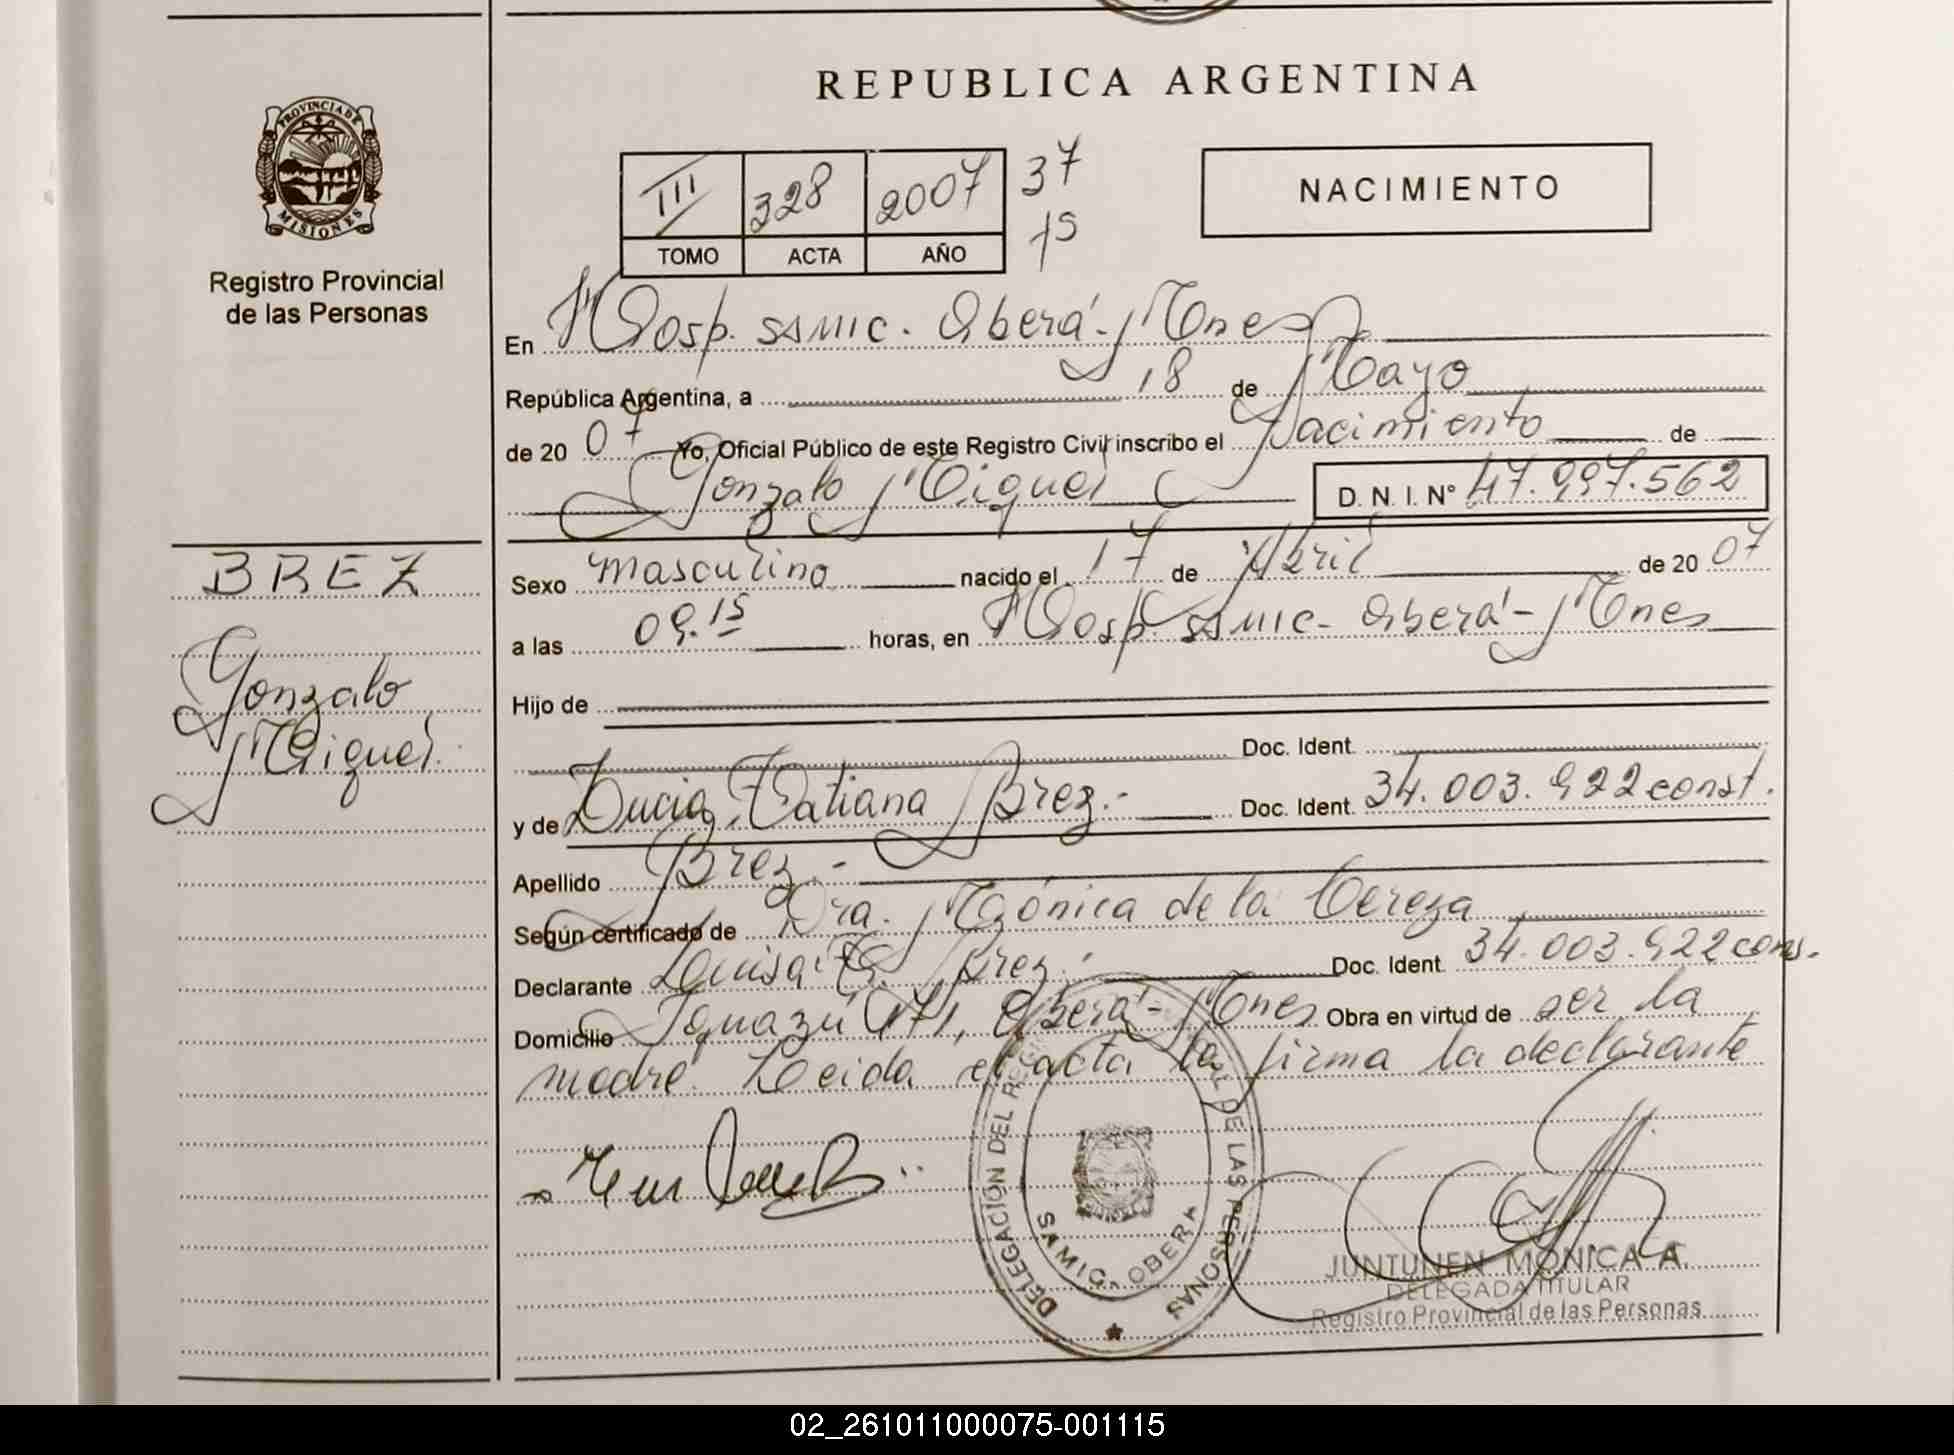 REPUBLICA ARGENTINA
PROVINCIA DE MISIONES
Registro Provincial
de las Personas
III 328 2007 37
15
TOMO ACTA AÑO
NACIMIENTO
En Hosp. SAMIC. Oberá - Mnes
República Argentina, a 18 de Mayo
de 20 07 Yo, Oficial Público de este Registro Civil inscribo el Nacimiento de
Gonzalo Miguel D. N. I. N° 47.997.562
BREZ
Gonzalo
Miguel.
Sexo masculino nacido el 17 de Abril de 20 07
a las 09.15 horas, en Hosp. SAMIC - Oberá - Mnes
Hijo de
Doc. Ident.
y de Tatiana Brez.- Doc. Ident. 34.003.922 const.
Apellido Brez.-
Según certificado de Dra. Mónica de la Cereza
Declarante Brez.- Doc. Ident. 34.003.922 cons.
Domicilio Oberá - Mnes Obra en virtud de ser la
madre. Leida el acta la firma la declarante
DELEGACIÓN DEL DE LAS PERSONAS
SAMIC - OBERA
JUNTUNEN MONICA A.
DELEGADA TITULAR
Registro Provincial de las Personas
02_261011000075-001115